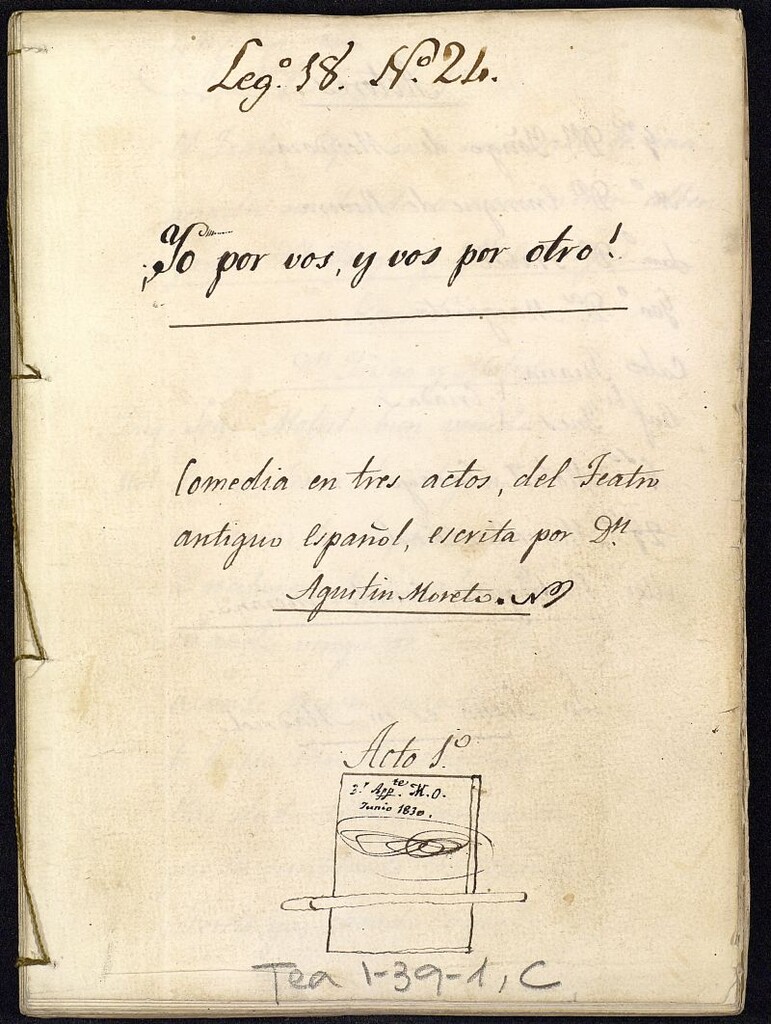 Leg.º 18. N.º 24.
¡Yo por vos, y vos por otro!
Comedia en tres actos, del Teatro
antiguo Español, escrita por Dn
Agustin Moreto.
Acto 1.º
2.r App.te M.O.
Junio 1830.
Tea 1-39-1, C